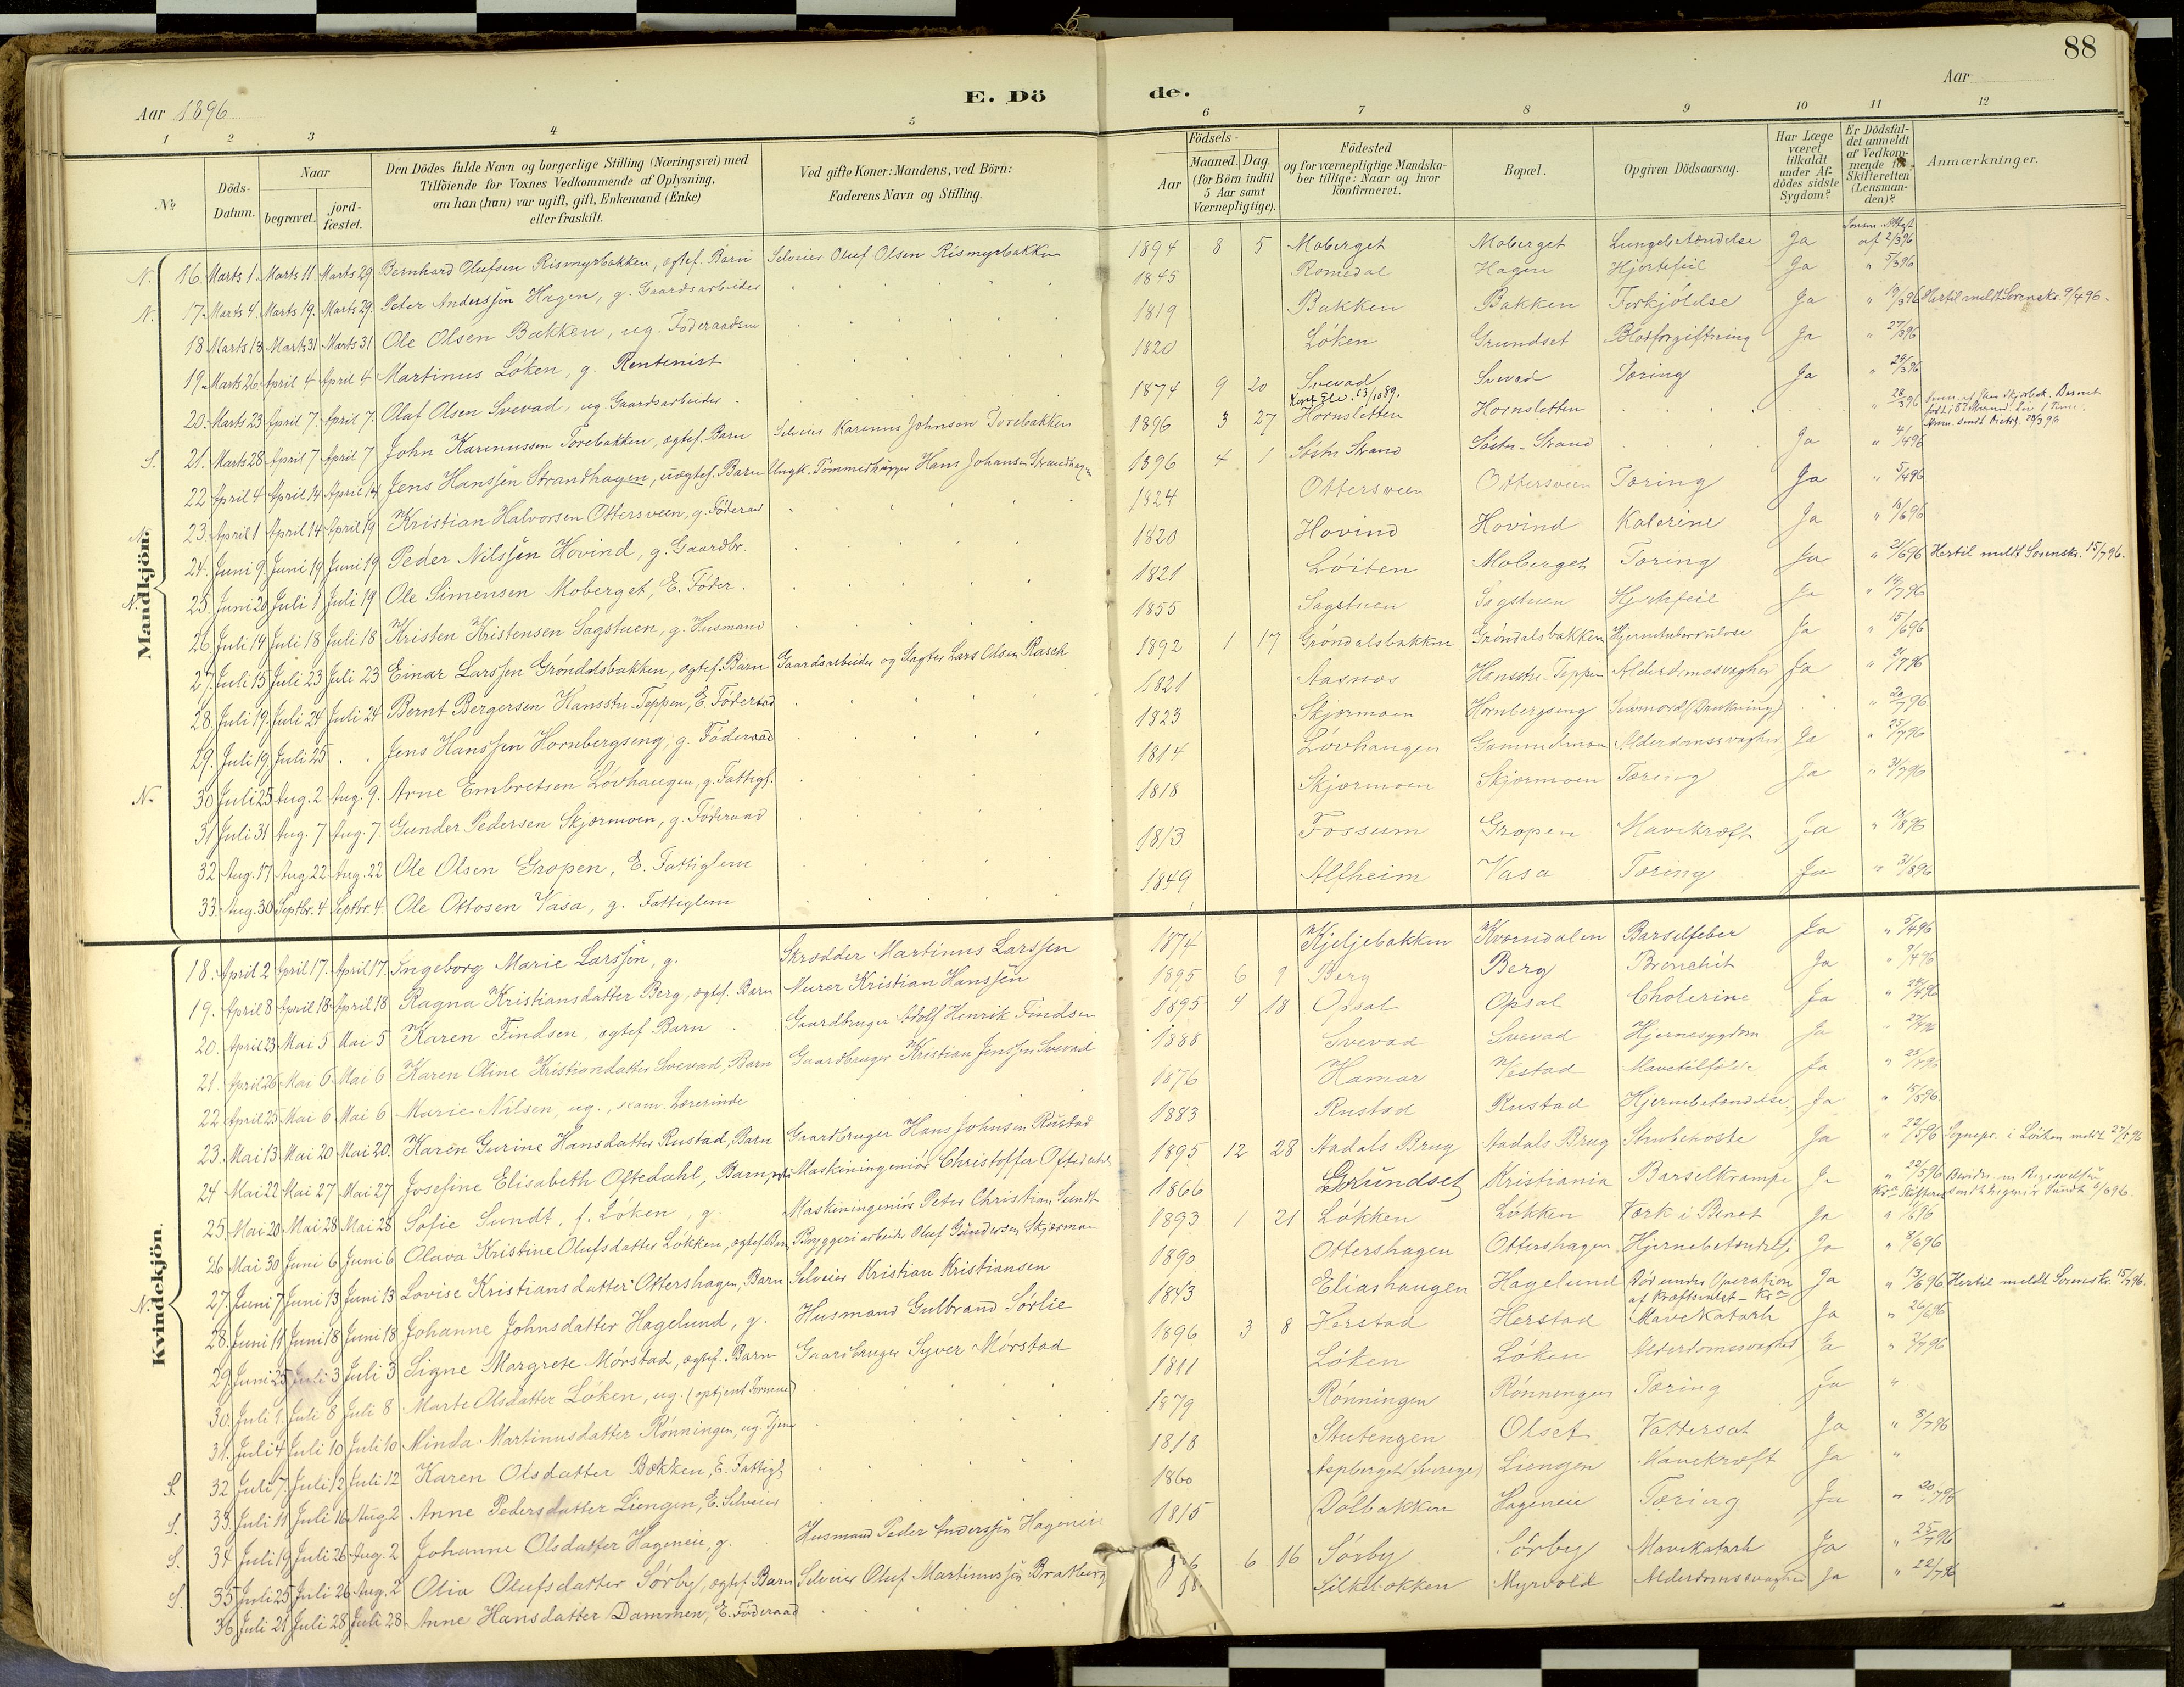 88
Aar 1896
E. Dö
de.
Aar
1 2 3 4 5 6 7 8 9 10 11 12
No
Döds-Datum.
Naar
begravet.
jord-fæstet.
Den Dödes fulde Navn og borgerlige Stilling (Næringsvei) med
Tilföiende for Voxnes Vedkommende af Oplysning,
om han (hun) var ugift, gift, Enkemand (Enke)
eller fraskilt.
Ved gifte Koner: Mandens, ved Börn:
Faderens Navn og Stilling.
Födsels-
Aar
Maaned. Dag.
(for Börn indtil
5 Aar samt
Værnepligtige).
Födested
og for værnepligtige Mandska-
ber tillige: Naar og hvor
konfirmeret.
Bopæl.
Opgiven Dödsaarsag.
Har Læge
været
tilkaldt
under Af-
dödes sidste
Sygdom?
Er Dödsfal-
det anmeldt
af Vedkom-
mende til
Skifteretten
(Lensman-
den)?
Anmærkninger.
Mandkjön.
N. 16. Marts 1. Marts 11 Marts 29 Bernhard Olufsen Rismyrbakken, ægtef. Barn Selveier Oluf Olsen Rismyrbakken 1894 8 5 Moberget Moberget Lungebetændelse Ja af 2/3 96
N. 17. Marts 4. Marts 19. Marts 29. Peter Anderssen Hagen, g. Gaardsarbeider 1845 Romedal Hagen Hjertefeil Ja " 5/3 96
18 Marts 18 Marts 31 Marts 31 Ole Olsen Bakken, ug. Föderaadsm 1819 Bakken Bakken Forkjölelse Ja " 19/3 96 Hertil meldt Sorenskr. 9/4 96.
19. Marts 26 April 4 April 4 Martinus Löken, g. Rentenist 1820 Löken Grundset Blodforgiftning Ja " 27/3 96
20. Marts 23 April 7. April 7. Olaf Olsen Svevad, ug. Gaardsarbeider 1874 9 20 Svevad Svevad Tæring Ja " 24/3 96
S. 21. Marts 28 April 7 April 7 John Karenussen Torebakken, ægtef. Barn Selveier Karenus Johnsen Torebakken 1896 3 27 Hornsletten Hornsletten " 28/3 96
22 April 4 April 14 April 14 Jens Hanssen Strandhagen, uægtef. Barn Ungk. Tömmerhugger Hans Johansen Strandhagen 1896 4 1 Söstu Strand Söstu-Strand Ja " 4/4 96
N. 23. April 1 April 14 April 19 Kristian Halvorsen Ottersveen, g. Föderaad 1824 Ottersveen Ottersveen Tæring Ja " 5/4 96
24. Juni 9. Juni 19 Juni 19 Peder Nilssen Hovind, g. Gaardbr. 1820 Hovind Hovind Kolerine Ja " 10/6 96
N. 25. Juni 20 Juli 1 Juli 19 Ole Simensen Moberget, E. Föder. 1821 Löiten Moberget Tæring Ja " 21/6 96 Hertil meldt Sorenskr. 15/7 96.
26 Juli 14 Juli 18 Juli 18 Kristen Kristensen Sagstuen, g. Husmand 1855 Sagstuen Sagstuen Hjertefeil Ja " 14/7 96
27. Juli 15 Juli 23 Juli 23 Einar Larssen Gröndalsbakken, ægtef. Barn Gaardsarbeider og Slagter Lars Olsen Rasch 1892 1 17 Gröndalsbakken Gröndalsbakken Hjernetuberculose Ja " 15/6 96
28. Juli 19. Juli 24 Juli 24 Bernt Bergersen Hansstu-Teppen, E. Föderaad 1821 Aasnæs Hansstu-Teppen Alderdomssvaghed Ja " 21/7 96
29. Juli 19. Juli 25 Jens Hanssen Hornbergseng, g. Föderaad 1823 Skjærmoen Hornbergseng Selvmord (Drukning) " 20/7 96
N. 30 Juli 25 Aug. 2 Aug. 9. Arne Embretsen Lövhaugen, g. Fattigl. 1814 Lövhaugen Gammelmoen Alderdomssvaghed Ja " 25/7 96
31 Juli 31 Aug. 7 Aug. 7. Gunder Pedersen Skjærmoen, g. Föderaad 1818 Skjærmoen Skjærmoen Tæring Ja " 31/7 96
32 Aug. 17 Aug. 22 Aug. 22 Ole Olsen Gropen, E. Fattiglem 1813 Fossum Gropen Mavekræft Ja " 18/8 96
33. Aug. 30 Septbr. 4 Septbr. 4. Ole Ottosen Vasa, g. Fattiglem 1849 Alfheim Vasa Tæring Ja " 31/8 96
Kvindekjön
18. April 2 April 17. April 17. Ingeborg Marie Larssen, g. Skrædder Martinus Larssen 1874 Kjeljebakken Kværndalen Barselfeber Ja " 5/4 96
19. April 8 April 18 April 18 Ragna Kristiansdatter Berg, ægtef. Barn Murer Kristian Hanssen 1895 6 9 Berg Berg Bronchit Ja " 9/4 96
20. April 23 Mai 5 Mai 5 Karen Findsen, ægtef Barn Gaardbruger Adolf Henrik Findsen 1895 4 18 Opsal Opsal Cholerine Ja " 24/4 96
21. April 26 Mai 6 Mai 6 Karen Oline Kristiansdatter Svevad, Barn Gaardbruger Kristian Jenssen Svevad 1888 Svevad Svevad Hjernesygdom Ja " 27/4 96
22. April 25 Mai 6 Mai 6 Marie Nilsen, ug., exam. Lærerinde 1876 Hamar Vestad Ja " 25/4 96
23. Mai 13 Mai 20 Mai 20. Karen Gurine Hansdatter Rustad, Barn Gaardbruger Hans Johnsen Rustad 1883 Rustad Rustad Hjernebetændelse Ja " 15/5 96
24 Mai 22 Mai 27 Mai 27 Josefine Elisabeth Oftedahl, Barn, Maskiningeniör Christoffer Oftedahl 1895 12 28 Aadals Brug Aadals Brug Strubehoste Ja " 22/5 96 Sognepr. i Löiten meldt 27/5 96
25. Mai 20 Mai 28 Mai 28 Sofie Sundt, f. Löken, g. Maskiningeniör Peter Christian Sundt 1866 Grundset Kristiania Barselkrampe Ja " 22/5 96
26 Mai 30 Juni 6 Juni 6 Olava Kristine Olufsdatter Lökken, ægtef. Barn Bryggeriarbeider Oluf Gundersen Skjærmoen 1893 1 21 Lökken Lökken Værk i Benet Ja " 1/6 96
N. 27. Juni 7 Juni 13 Juni 13 Lovise Kristiansdatter Ottershagen, Barn Selveier Kristian Kristiansen 1890 Ottershagen Ottershagen Hjernebetændelse Ja " 8/6 96
28. Juni 11 Juni 18 Juni 18 Johanne Johnsdatter Hagelund, g. Husmand Gulbrand Sörlie 1843 Eliashaugen Hagelund Död under Operation Ja " 13/6 96 Hertil meldt Sorenskr. 15/7 96.
29. Juni 25 Juli 3 Juli 3 Signe Margrete Mörstad, ægtef. Barn Gaardbruger Syver Mörstad 1896 3 8 Herstad Herstad Mavekatarh Ja " 26/6 96
30. Juli 1. Juli 8 Juli 8 Marte Olsdatter Löken, ug. 1811 Löken Löken Alderdomssvaghed Ja " 2/7 96
31. Juli 4 Juli 10 Juli 10 Minda Martinusdatter Rönningen, ug. Tjen 1879 Rönningen Rönningen Tæring Ja "
S. 32 Juli 7. Juli 12 Juli 12 Karen Olsdatter Bakken, E. Fattigl 1818 Stutengen Olset Vattersot Ja " 8/7 96
S. 33. Juli 11 Juli 16 Aug 2 Anne Pedersdatter Liengen, E. Selveier 1860 Aspberget (Sverige) Liengen Mavekræft Ja "
S. 34 Juli 19 Juli 26 Aug. 2 Johanne Olsdatter Hageneie, g. Husmand Peder Anderssen Hageneie 1815 Dölbakken Hageneie Tæring Ja " 20/7 96
S. 35 Juli 25 Juli 26 Aug. 2 Olia Olufsdatter Sörby, ægtef. Barn Selveier Oluf Martinussen Bratberg 6 16 Sörby Sörby Mavekatarh Ja " 25/7 96
36 Juli 21 Juli 28 Juli 28. Anne Hansdatter Dammen, E. Föderaad Silkebakken Myrvold Alderdomssvaghed Ja " 22/7 96